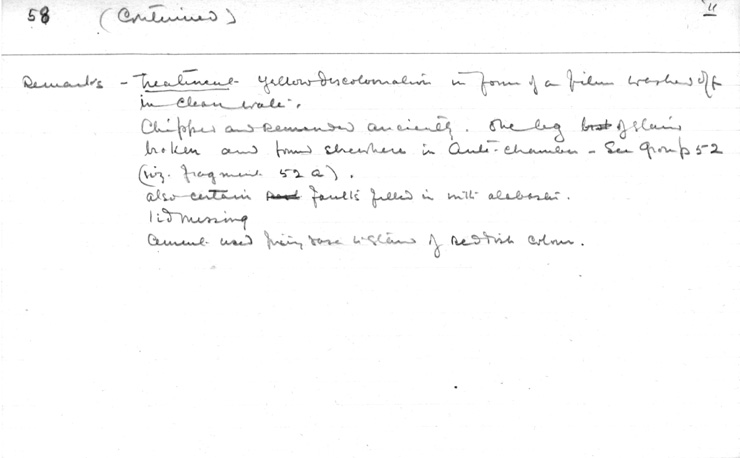 58 (Continued) "
Remarks - Treatment - Yellow discolouration in form of a film washed off
in clean water.
Chipped and Remanded anciently. One leg of stand
broken and found elsewhere in Ante-chamber - See Group 52
(viz. fragment 52 a).
also certain faults filled in with alabaster.
lid missing
Cement used fixing vase to stand of reddish colour.